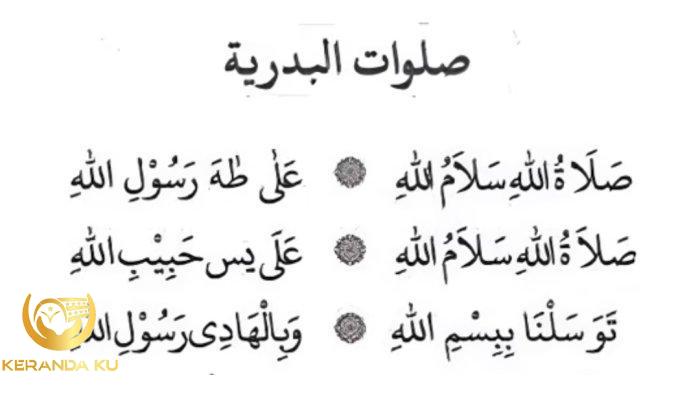 صلوات البدرية
صَلَاةُ اللهِ سَلَامُ اللهِ ۞ عَلٰى طٰهَ رَسُوْلِ اللهِ
صَلَاةُ اللهِ سَلَامُ اللهِ ۞ عَلَى يس حَبِيْبِ اللهِ
تَوَسَلْنَا بِبِسْمِ اللهِ ۞ وَبِالْهَادِى رَسُوْلِ اللهِ
KERANDA KU